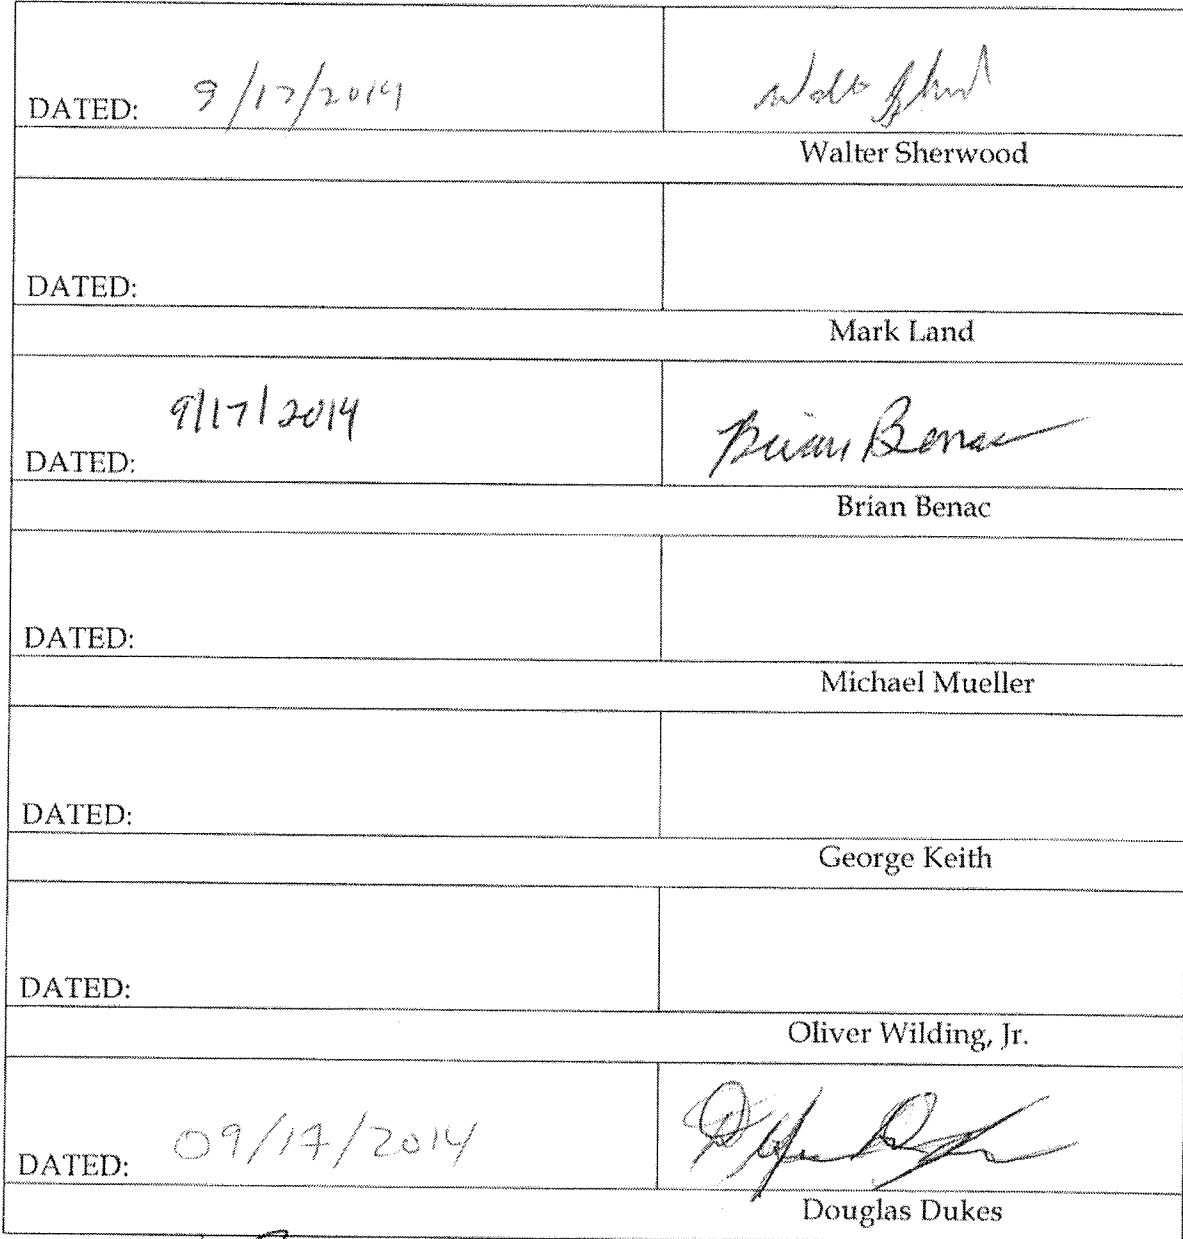 DATED: 9/17/2014
Walter Sherwood
DATED:
Mark Land
9/17/2014
DATED:
Brian Benac
Brian Benac
DATED:
Michael Mueller
DATED:
George Keith
DATED:
Oliver Wilding, Jr.
DATED: 09/17/2014
Douglas Dukes